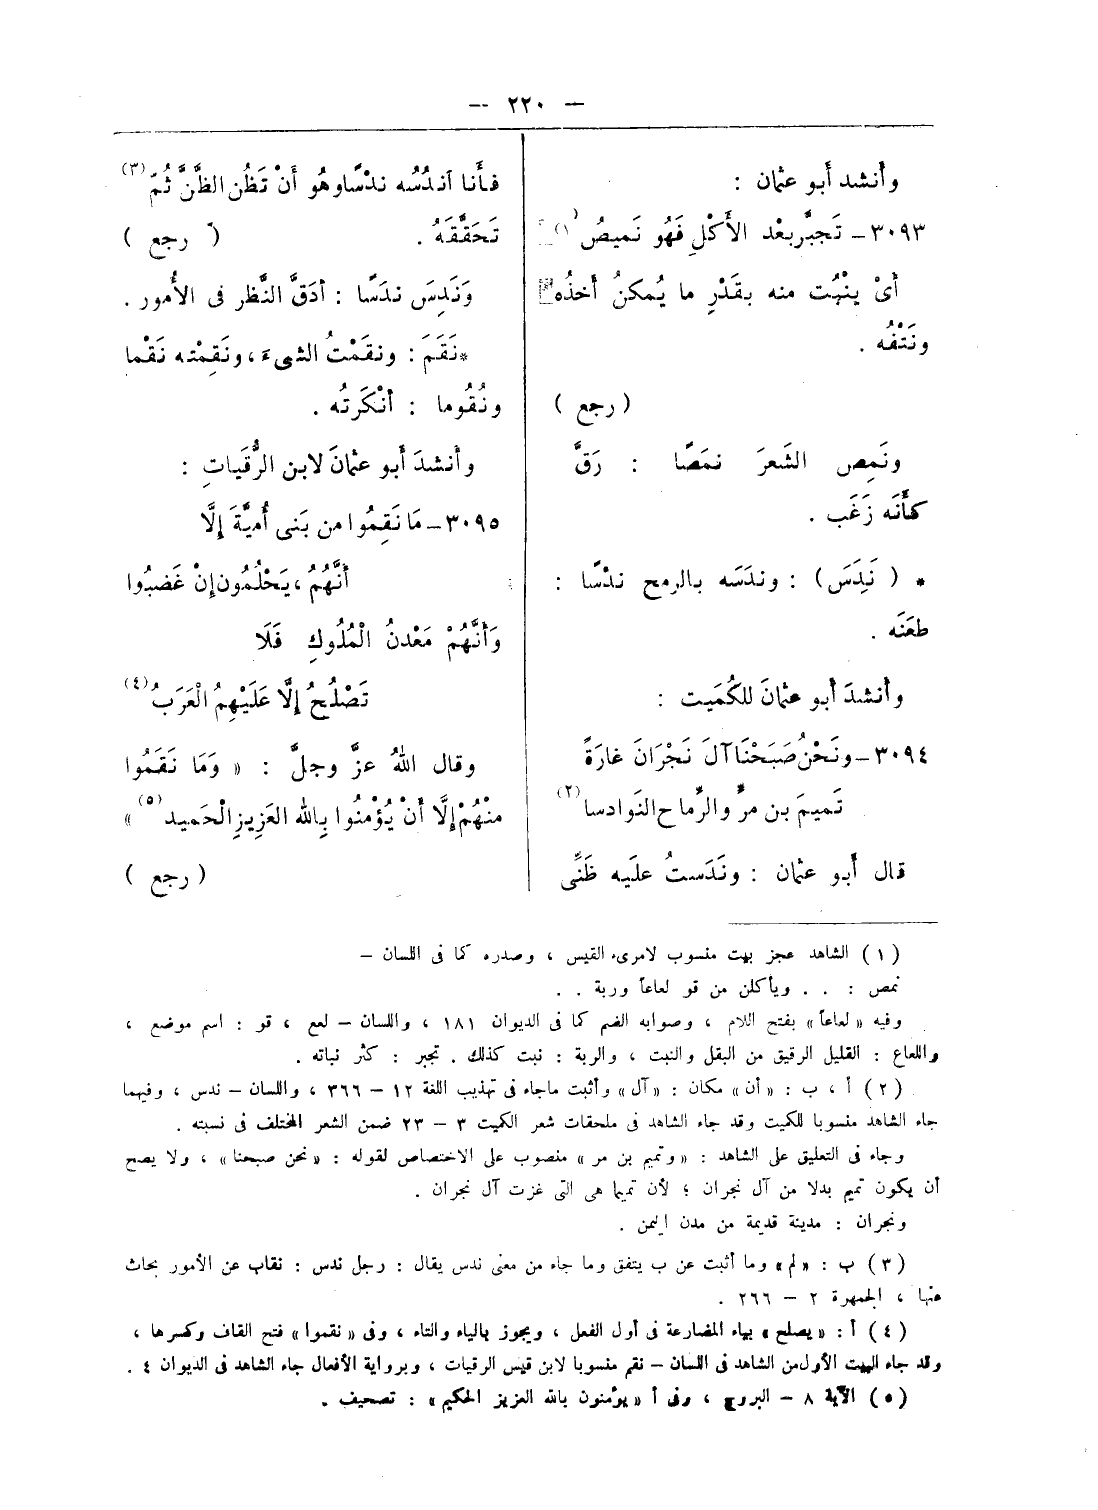 — ٢٢٠ —
وأنشد أبو عثمان :
٣٠٩٣ – تَجبَّر بعْد الأَكْلِ فَهُو نَميصُ (١)
أىْ ينْبُت منه بقَدْرِ ما يُمكنُ أخذُه
ونَتْفُه .
( رجع )
ونَمِص الشَعرَ نمَصًا : رَقَّ
كأَنَه زَغَب .
* ( نَدَسَ ) : وندَسَه بالرمح ندْسًا :
طعَنَه .
وأنشدَ أبو عثمانَ للكُمَيت :
٣٠٩٤ – ونَحْنُ صَبَحْنَا آلَ نَجْرَانَ غارَةً
تَميمَ بن مرٍّ والرِّماح النَوادسا (٢)
قال أَبو عثمان : ونَدَستُ علَيه ظَنِّى
فأَنا أندُسُه ندْسًا وهُو أَنْ تَظُن الظَّنَّ ثُمّ (٣)
تَحَقَّقَهُ . ( رجع )
ونَدِسَ ندَسًا : أدَقَّ النَّظر فى الأُمور .
* نَقَمَ : ونقَمْتُ الشىءَ ، ونَقِمْته نَقْما
ونُقُوما : أنْكَرتُه .
وأنشدَ أبو عثمانَ لابن الرُّقَيات :
٣٠٩٥ – مَا نَقِمُوا من بَنى أُميَّةَ إلَّا
أنَّهُمُ ، يَحْلُمُون إنْ غَضبُوا
وَأنَّهُمْ مَعْدنُ الْمُلُوكِ فَلَا
تَصْلُحُ إلَّا عَلَيْهِمُ الْعَرَبُ (٤)
وقال اللهُ عزَّ وجلَّ : « وَمَا نَقَمُوا
منْهُمْ إلَّا أَنْ يُؤْمنُوا بِالله العَزِيزِ الْحَميد (٥) »
( رجع )
(١) الشاهد عجز بيت منسوب لامرىء القيس ، وصدره كما فى اللسان –
نمص : . . ويأكلن من قو لعاعاً وربة . .
وفيه « لعاعاً » بفتح اللام ، وصوابه الضم كما فى الديوان ١٨١ ، واللسان – لعع ، قو : اسم موضع ،
واللعاع : القليل الرقيق من البقل والنبت ، والربة : نبت كذلك . تجبر : كثر نباته .
(٢) أ ، ب : « أن » مكان : « آل » وأثبت ماجاء فى تهذيب اللغة ١٢ – ٣٦٦ ، واللسان – ندس ، وفيهما
جاء الشاهد منسوبا للكميت وقد جاء الشاهد فى ملحقات شعر الكميت ٣ – ٢٣ ضمن الشعر المختلف فى نسبته .
وجاء فى التعليق على الشاهد : « وتميم بن مر » منصوب على الاختصاص لقوله : « نحن صبحنا » ، ولا يصح
أن يكون تميم بدلا من آل نجران ؛ لأن تميما هى التى غزت آل نجران .
ونجران : مدينة قديمة من مدن اليمن .
(٣) ب : « لم » وما أثبت عن ب يتفق وما جاء من معنى ندس يقال : رجل ندس : نقاب عن الأمور بحاث
عنها ، الجمهرة ٢ – ٢٦٦ .
(٤) أ : « يصلح » بياء المضارعة فى أول الفعل ، ويجوز بالياء والتاء ، وفى « نقموا » فتح القاف وكسرها ،
وقد جاء البيت الأول من الشاهد فى اللسان – نقم منسوبا لابن قيس الرقيات ، وبرواية الأفعال جاء الشاهد فى الديوان ٤ .
(٥) الآية ٨ – البروج ، وفى أ « يؤمنون بالله العزيز الحكيم » : تصحيف .